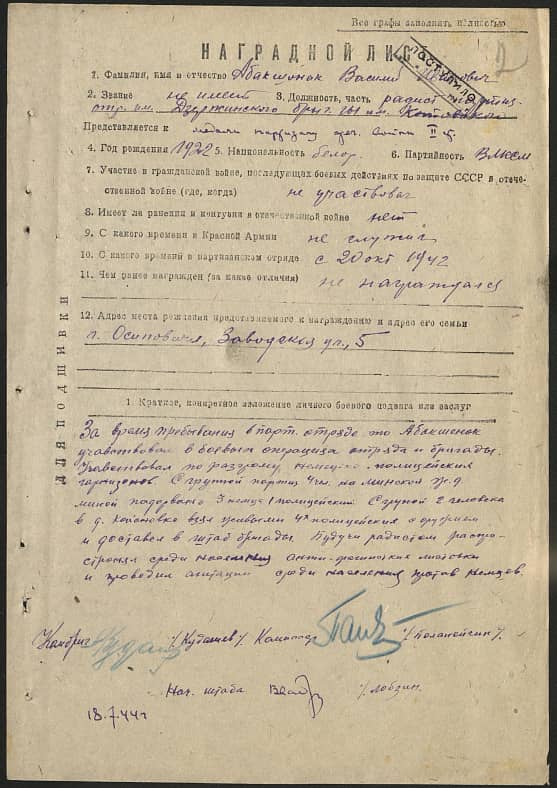 Все графы заполнять полностью
НАГРАДНОЙ ЛИС
1. Фамилия, имя и отчество Абакшонок Васили
2. Звание не имеет 3. Должность, часть радист
отр. им. Дзержинского бриг-ды им. Котовского
Представляется к медали партизану отеч. войны II ст.
4. Год рождения 1922 5. Национальность белор. 6. Партийность ВЛКСМ
7. Участие в гражданской войне, последующих боевых действиях по защите СССР в отече-
ственной войне (где, когда) не участвовал
8. Имеет ли ранения и контузии в отечественной войне нет
9. С какого времени в Красной Армии не служил
10. С какого времени в партизанском отряде с 20 окт 1942
11. Чем ранее награжден (за какие отличия) не награждался
12. Адрес места жительства представляемого к награждению и адрес его семьи
г. Осиповичи, Заводская ул., 5
ДЛЯ ПОДШИВКИ
1. Краткое, конкретное изложение личного боевого подвига или заслуг
За время пребывания в парт. отряде тов Абакшонок
участвовал в боевых операциях отряда и бригады.
Участвовал по разгрому немецко-полицейских
гарнизонов. С группой партиз 4 чел. на минской ж.д
миной подорвано 3 немца 1 полицейский С групой 2 человека
в д. взял живыми 4х полицейских с оружием
и доставил в штаб бригады. Будучи радистом распо-
стронял среди населения анти-фашистские листовки
и проводил агитацию среди населения против немцев.
Комбриг /Кудашев/. Командир
Нач. штаба /Лобзин.
18.7.44 г